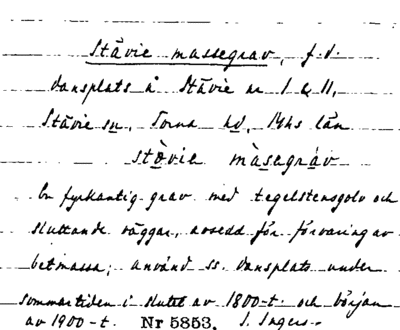 Stävie massegrav, f.d.
dansplats å Stävie nr 1 & 11,
Stävie sn, Torna hd, Mhs län
stòvie màsegráv
En fyrkantig grav med tegelstensgolv och
sluttande väggar, avsedd för förvaring av
betmassa; använd ss. dansplats under
sommartiden i slutet av 1800-t. och början
av 1900-t. Nr 5853. S. Ingers.